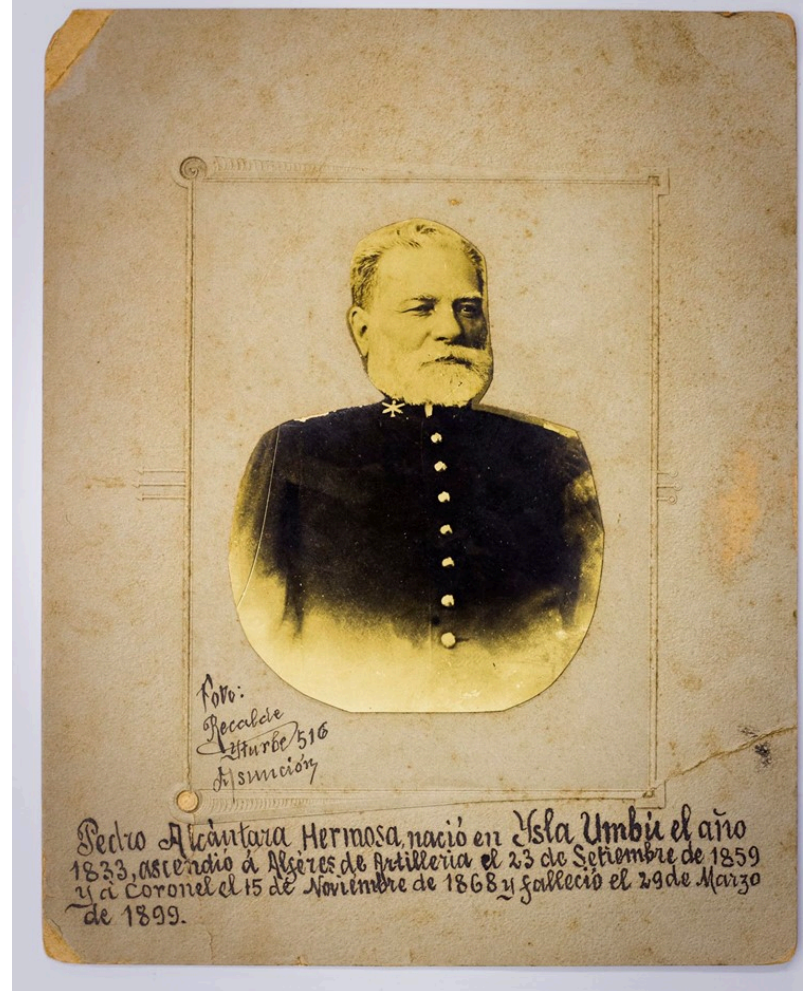 Foto:
Recalde
Yturbe 516
Asunción
Pedro Alcántara Hermosa, nació en Ysla Umbú el año
1833, ascendio á Algéres de Artilleria el 23 de Setiembre de 1859
y á Coronel el 15 de Noviembre de 1868 y falleció el 29 de Marzo
de 1899.